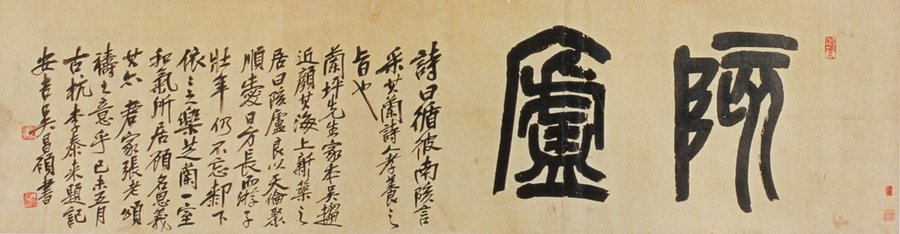 陔廬
詩曰循彼南陔言
采其蘭詩人孝養之
旨也
蘭坪先生家本吳趨
近顏其海上新築之
居曰陔廬良以天倫聚
順愛日方長而游子
壯年仍不忘厀下
依〻之樂芝蘭一室
和氣所居顧名思義
其亦 君家張老頌
禱之意乎己未五月
古杭李泰來題記
安吉吳昌碩書